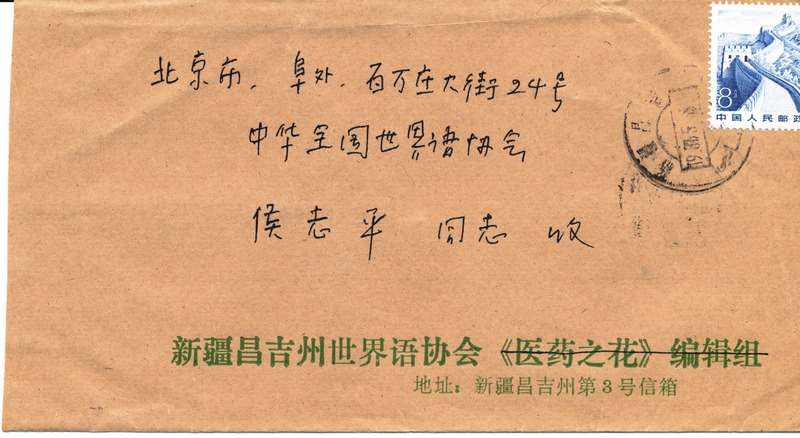 8
中国人民邮政
北京市，阜外，百万庄大街24号
中华全国世界语协会
侯志平 同志 收
新疆昌吉州世界语协会《医药之花》编辑组
地址：新疆昌吉州第3号信箱